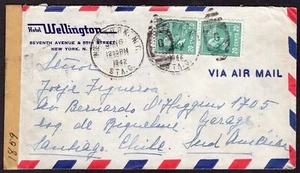 Hotel Wellington
SEVENTH AVENUE & 55TH STREET
NEW YORK, N.Y.
NEW YORK, N.Y.
1942
STA. G.
VIA AIR MAIL
Señor
Jorje Figueroa
Bernardo O'Higgins 1705
Esq de Riquelme, Garage
Santiago Chile. Sud America
1859